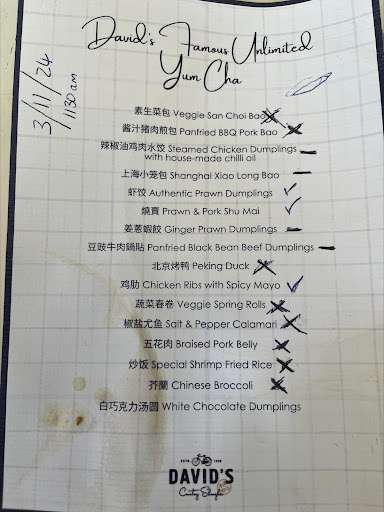 David's Famous Unlimited
Yum Cha
3/11/24
1130am
素生菜包 Veggie San Choi Bao
酱汁猪肉煎包 Panfried BBQ Pork Bao
辣椒油鸡肉水饺 Steamed Chicken Dumplings
with house-made chilli oil
上海小笼包 Shanghai Xiao Long Bao
虾饺 Authentic Prawn Dumplings
燒賣 Prawn & Pork Shu Mai
姜蔥蝦餃 Ginger Prawn Dumplings
豆豉牛肉鍋貼 Panfried Black Bean Beef Dumplings
北京烤鸭 Peking Duck
鸡肋 Chicken Ribs with Spicy Mayo
蔬菜春卷 Veggie Spring Rolls
椒盐尤鱼 Salt & Pepper Calamari
五花肉 Braised Pork Belly
炒饭 Special Shrimp Fried Rice
芥蘭 Chinese Broccoli
白巧克力汤圆 White Chocolate Dumplings
DAVID'S